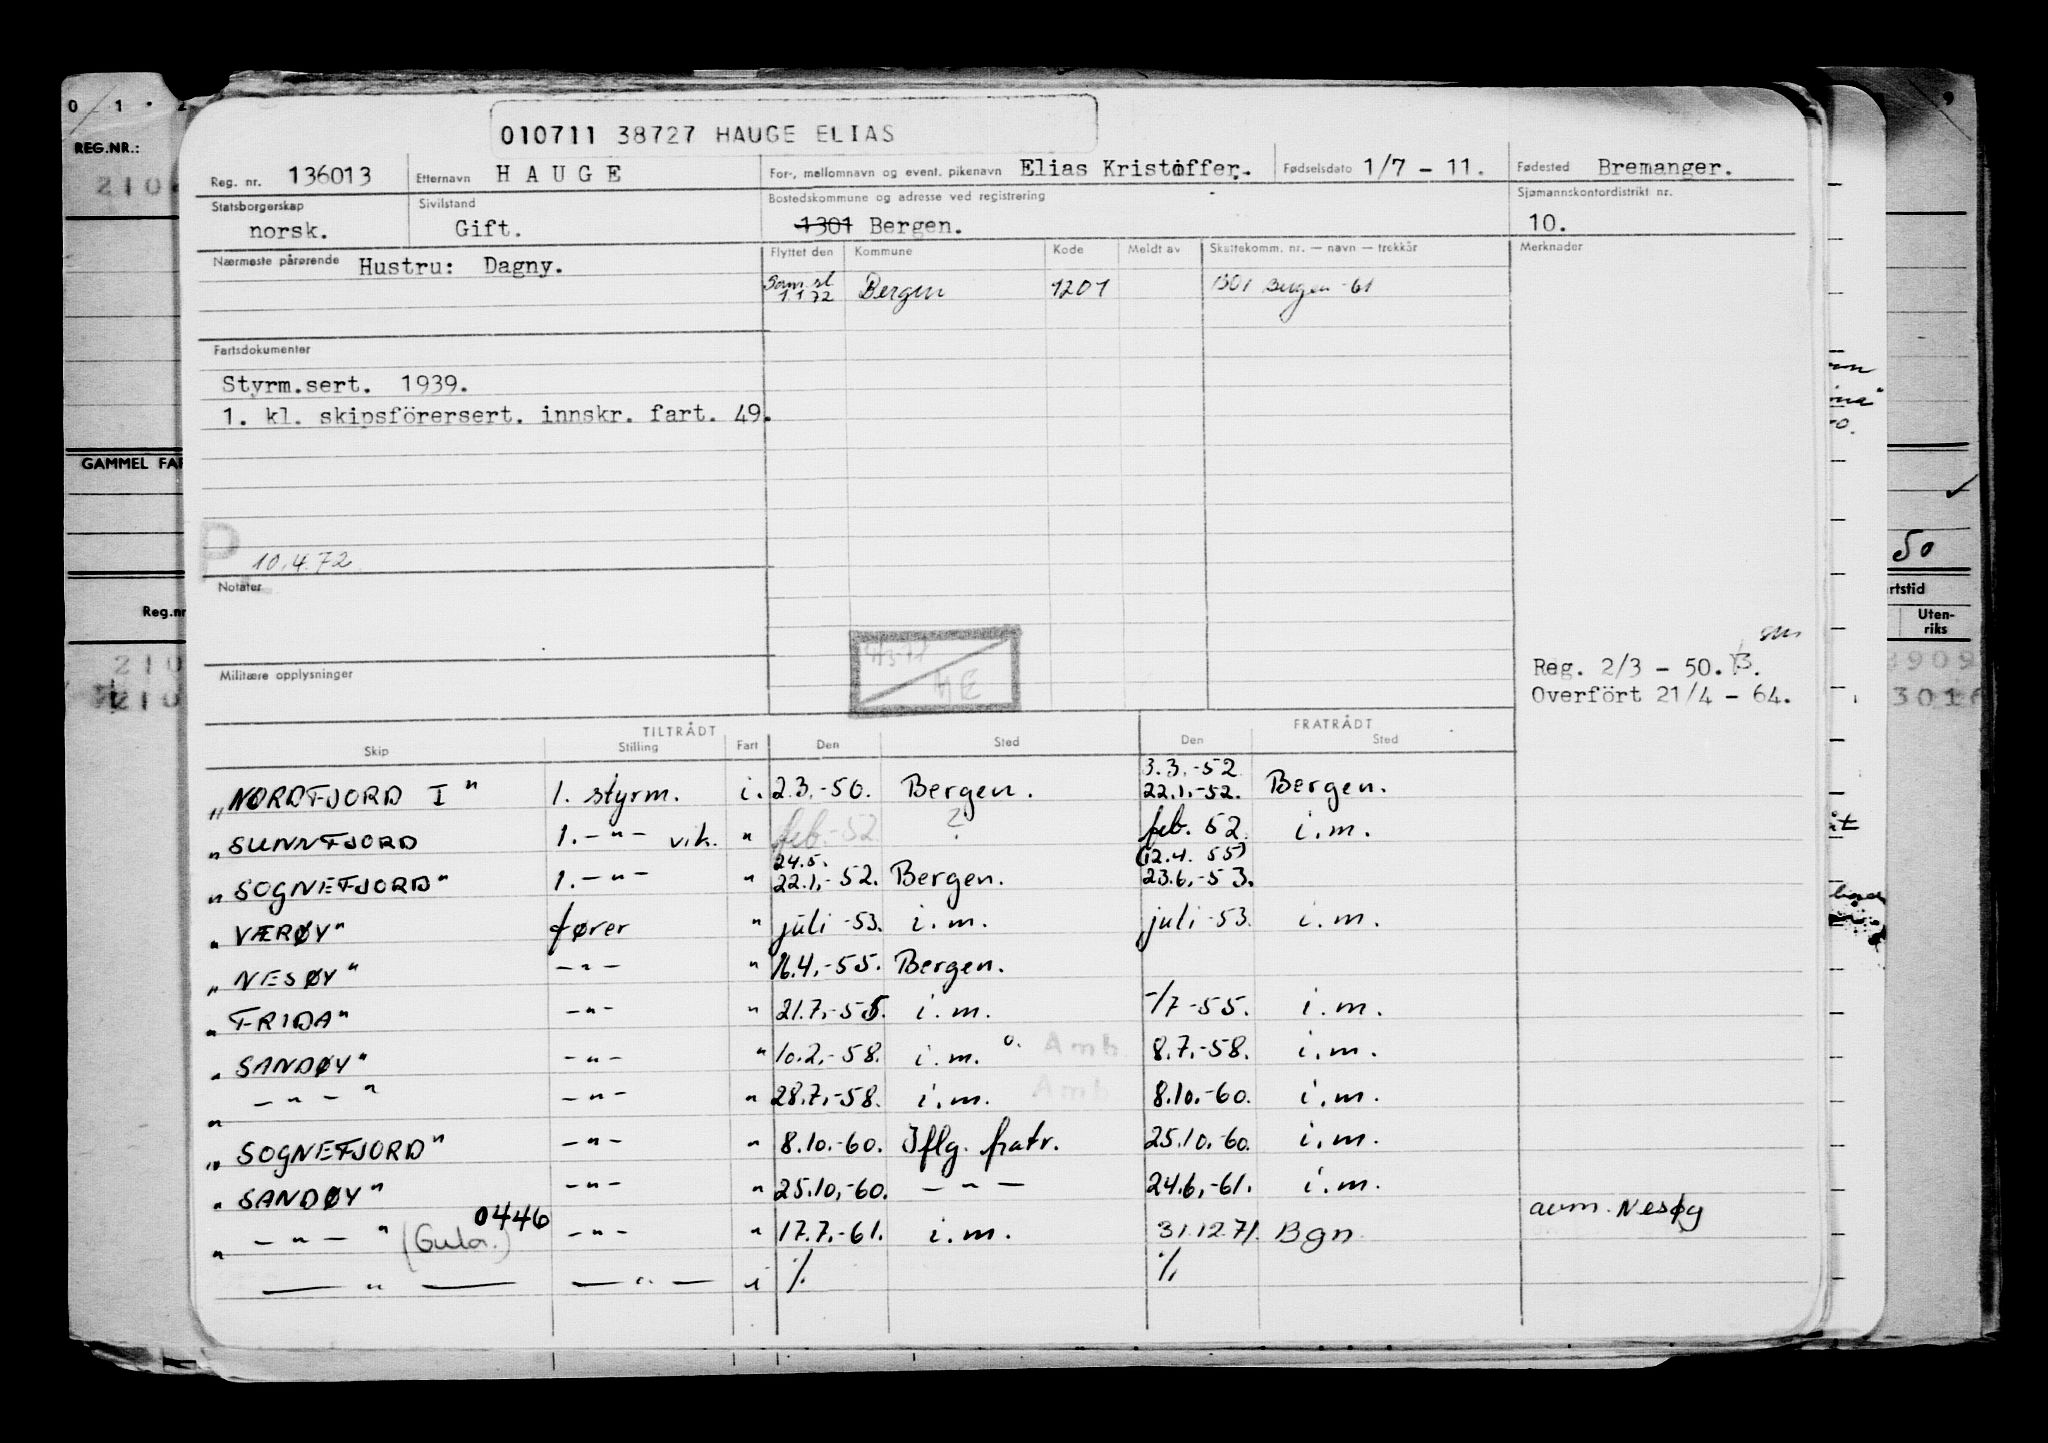 010711 38727 HAUGE ELIAS
Reg. nr. 136013 Etternavn HAUGE For-, mellomnavn og event. pikenavn Elias Kristoffer. Fødselsdato 1/7 - 11. Fødested Bremanger.
Statsborgerskap norsk. Sivilstand Gift. Bostedskommune og adresse ved registrering 1301 Bergen. Sjømannskontordistrikt nr. 10.
Nærmeste pårørende Hustru: Dagny. Flyttet den Kommune Kode Meldt av Skattekomm. nr. — navn — trekkår Merknader
1 1 72 Bergen 1201 1301 Bergen -61
Fartsdokumenter
Styrm.sert. 1939.
1. kl. skipsförersert. innskr. fart. 49.
10.4.72
Notater
Militære opplysninger
Reg. 2/3 - 50.
Overfört 21/4 - 64.
TILTRÅDT FRATRÅDT
Skip Stilling Fart Den Sted Den Sted
3.3.-52
„NORDFJORD I" 1. styrm. i. 2.3.-50. Bergen. 22.1.-52. Bergen.
„SUNNFJORD 1. -"- vik. " feb.-52 ? feb. 52. i.m.
24.5. (12.4. 55)
„SOGNEFJORD" 1. -"- " 22.1.-52. Bergen. 23.6.-53.
„VÆRØY" fører " juli -53. i.m. juli -53. i.m.
„NESØY" -"- " 16.4.-55. Bergen.
„FRIDA" -"- " 21.7.-55. i.m. -/7-55. i.m.
„SANDØY" -"- " 10.2.-58. i.m. Amb. 8.7.-58. i.m.
„ - " - " -"- " 28.7.-58. i.m. Amb. 8.10.-60. i.m.
„SOGNEFJORD" -"- " 8.10.-60. Iflg. fratr. 25.10.-60. i.m.
„SANDØY" -"- " 25.10.-60. -"- 24.6.-61. i.m.
„ - " - " (Gula.) 0446 -"- " 17.7.-61. i.m. 31.12.71. Bgn. Nesøy
— " — — " — i % %
REG.NR.:
GAMMEL FAR
Reg.nr
50
rtstid
Uten-
riks